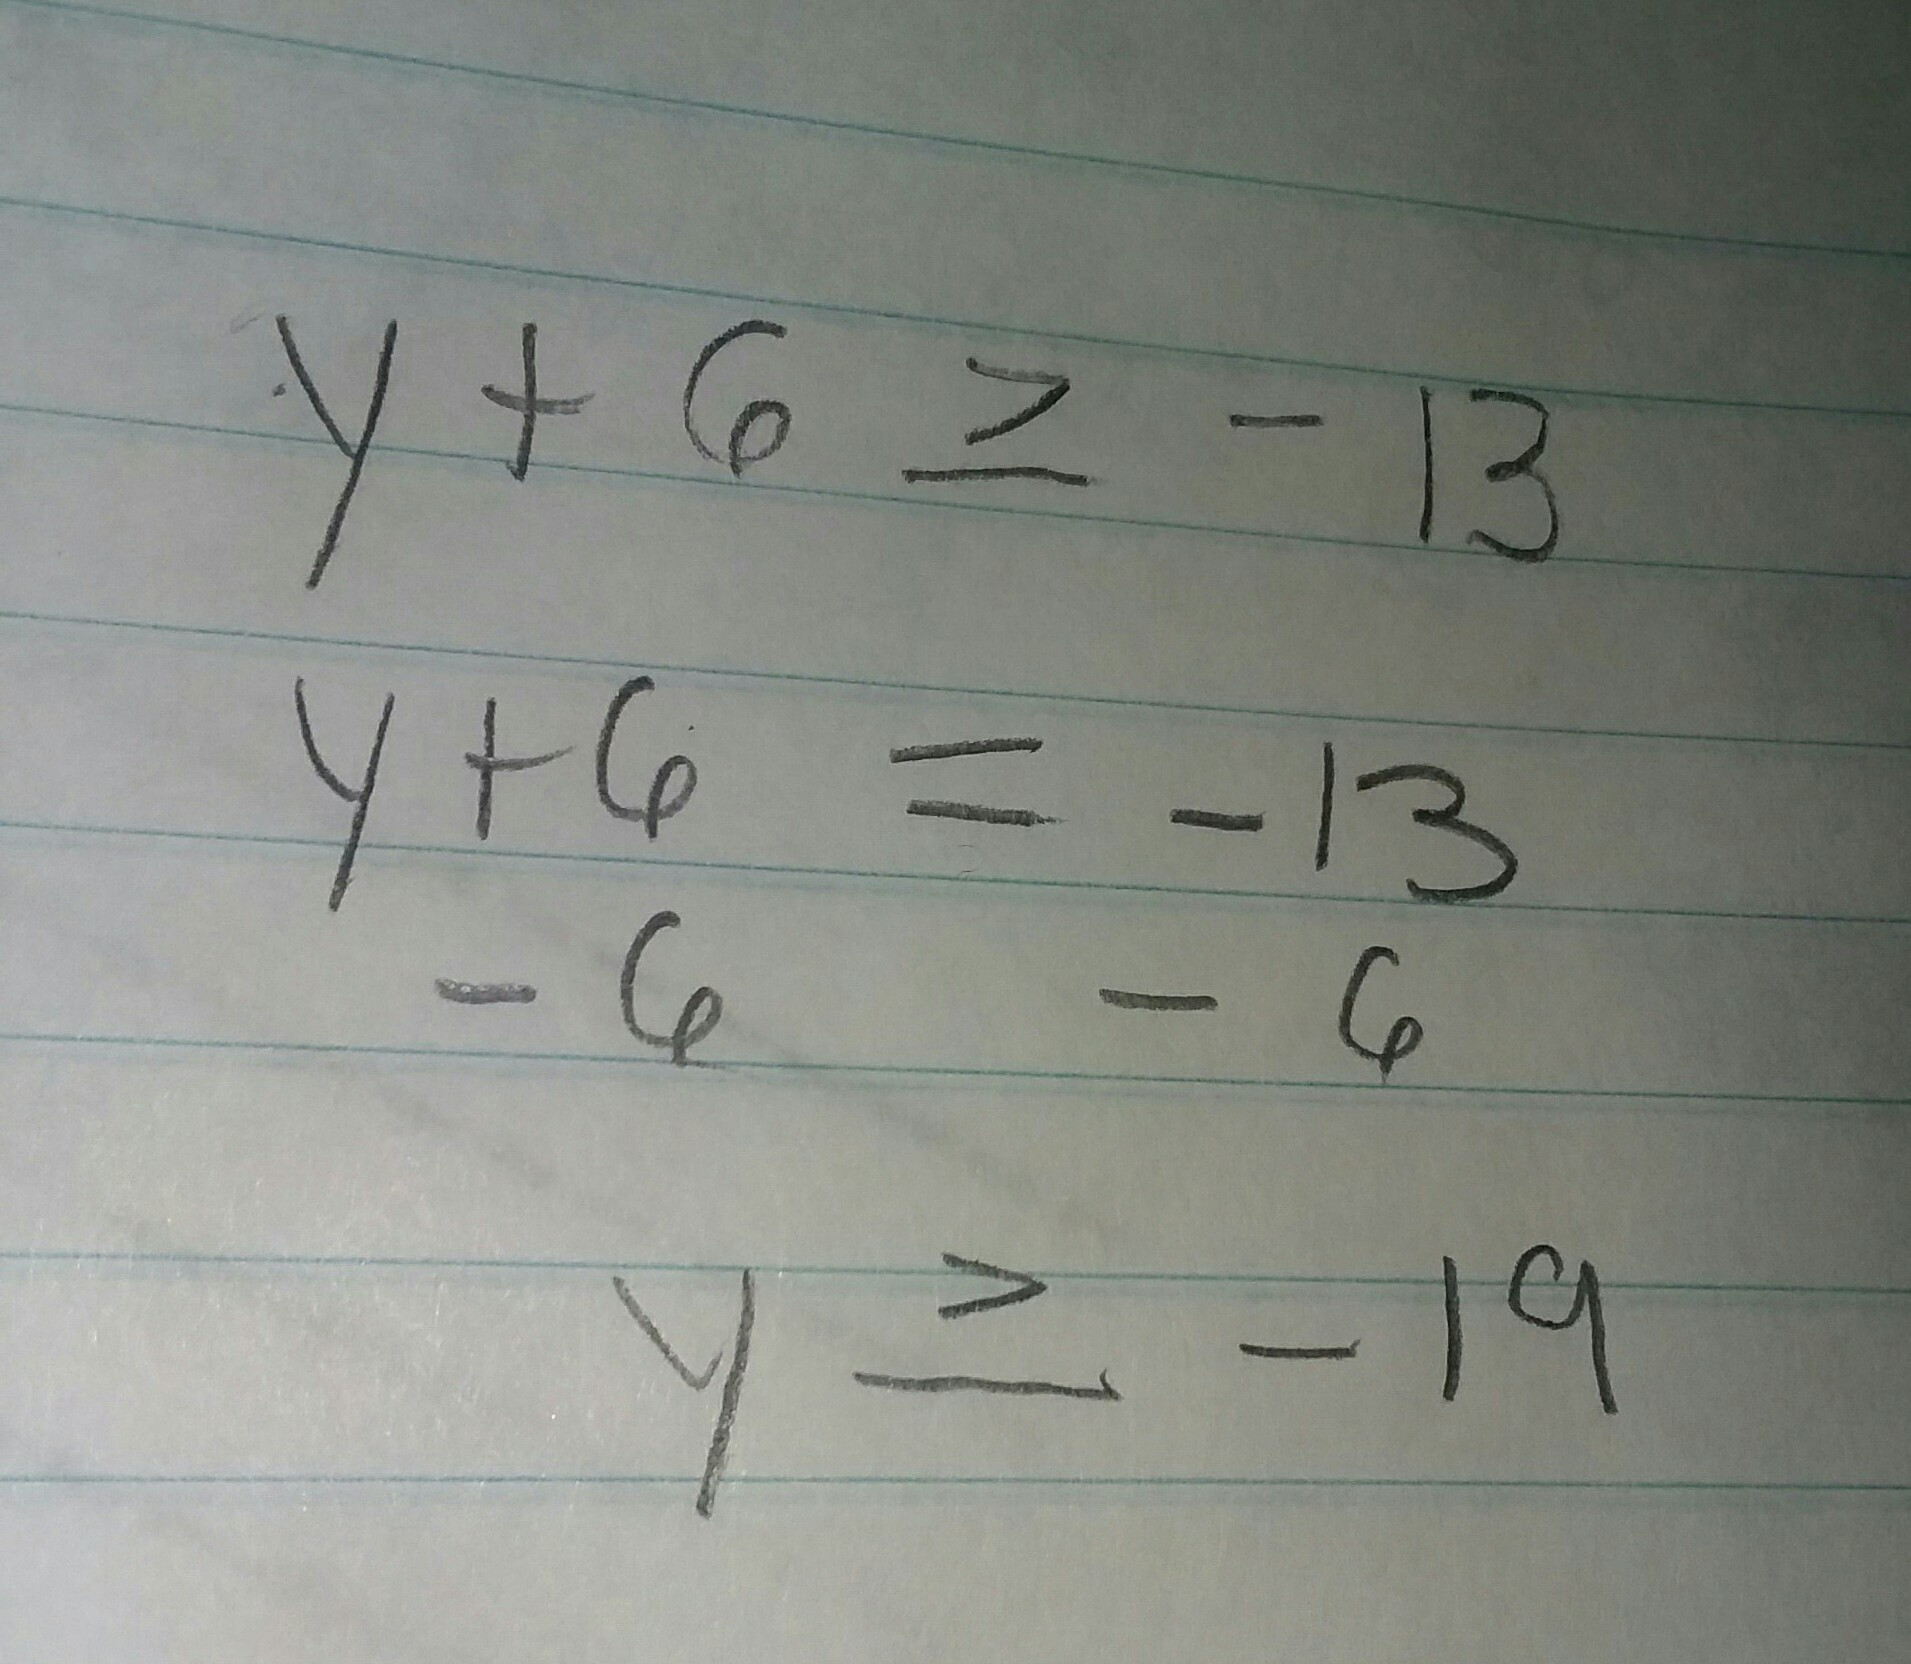 y + 6 ≥ - 13
y + 6 = - 13
- 6 - 6
y ≥ - 19